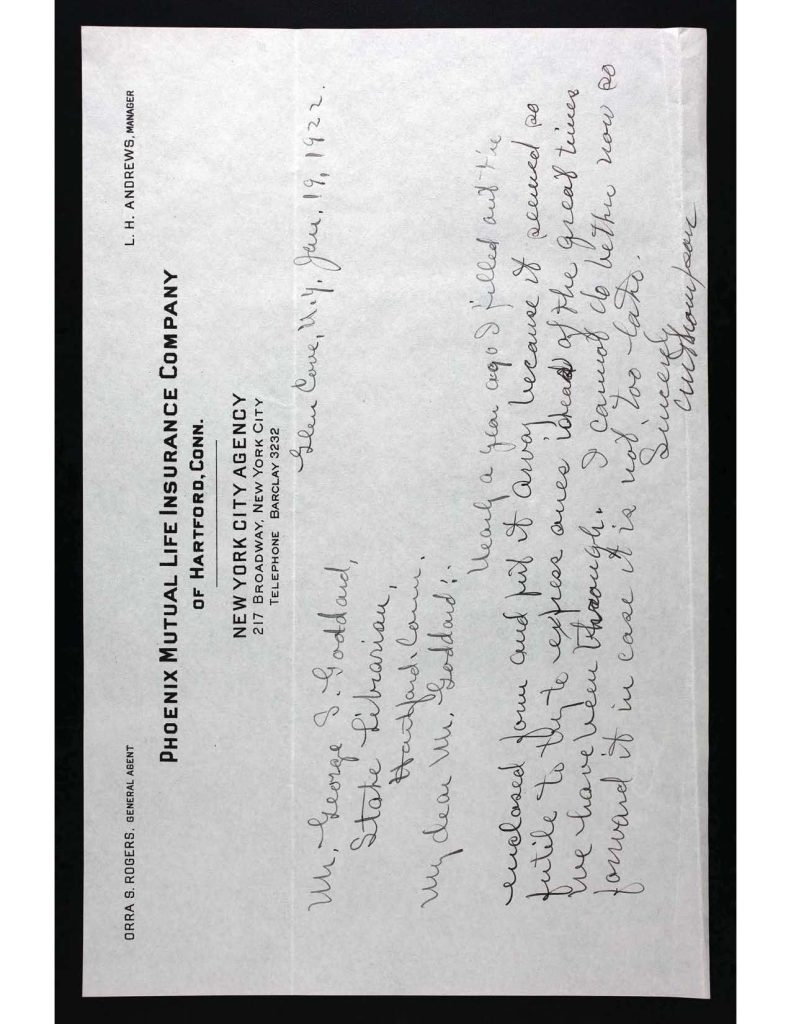 ORRA S. ROGERS, GENERAL AGENT
L. H. ANDREWS, MANAGER
PHOENIX MUTUAL LIFE INSURANCE COMPANY
OF HARTFORD, CONN.
NEW YORK CITY AGENCY
217 BROADWAY, NEW YORK CITY
TELEPHONE BARCLAY 3232
Glen Cove, N.Y. Jan. 19, 1922.
Mr. George S. Goddard,
State Librarian,
Hartford, Conn.
My dear Mr. Goddard:
Nearly a year ago I filled out the
enclosed form and put it away because it seemed so
futile to try to express ones ideas of the great times
we have been through. I cannot do better now so
forward it in case it is not too late.
Sincerely
Thompson